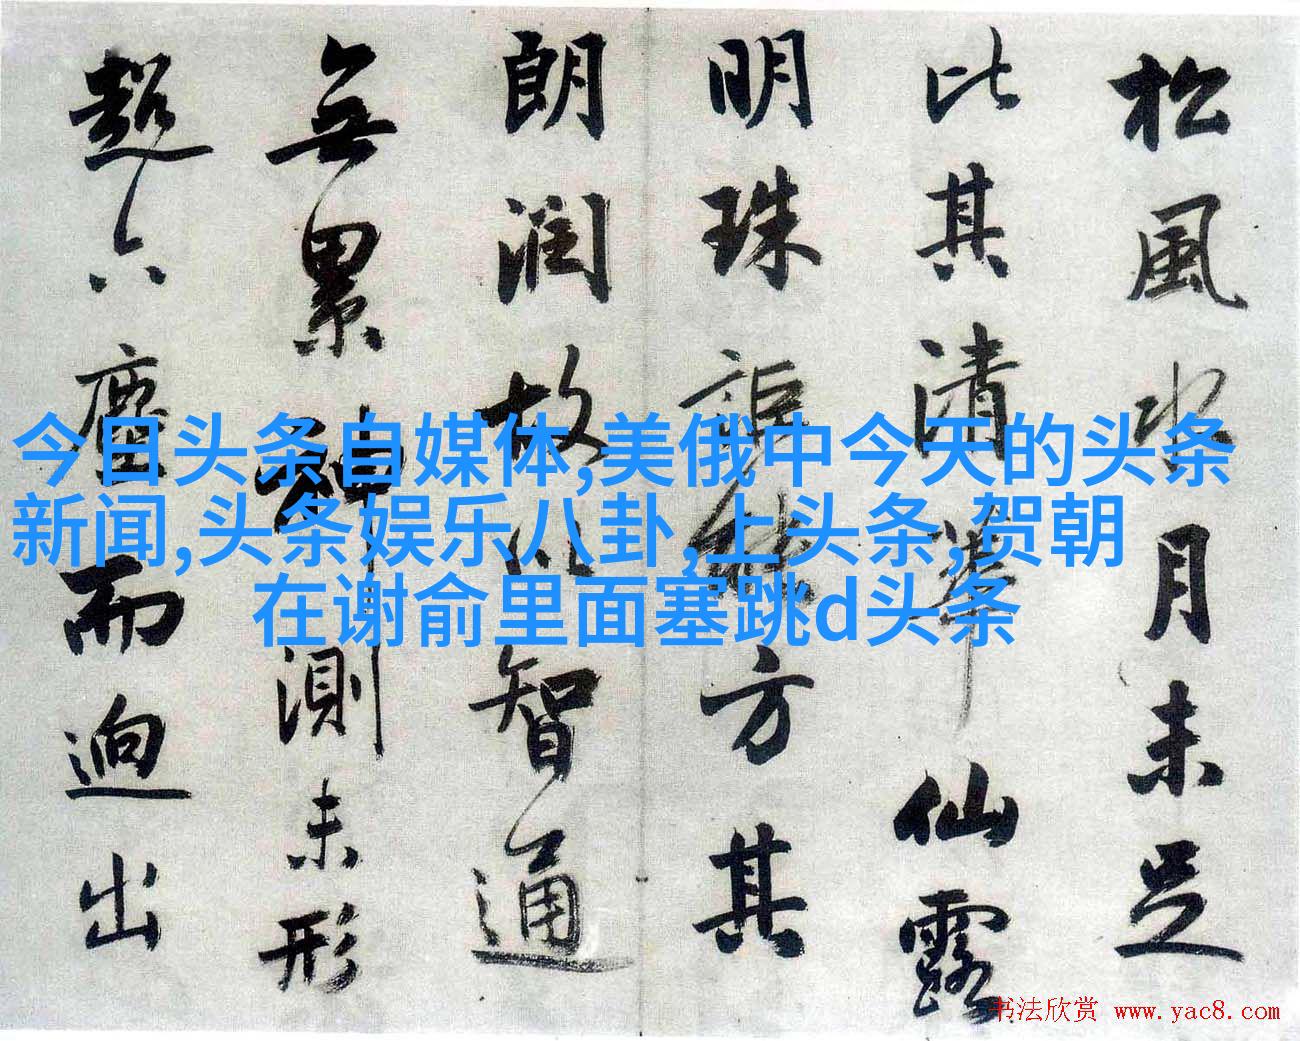 松風水月未足
比其清華仙露
明珠詎能方其
朗潤故以智通
無累神測未形
超六塵而迥出
今日头条自媒体,美俄中今天的头条
新闻,头条娱乐八卦,上头条,贺朝
在谢俞里面塞跳d头条
书法欣赏 www.yac8.com